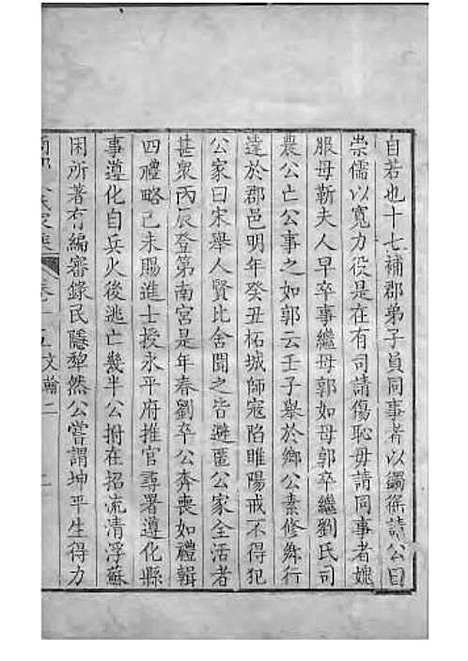 自若也十七補郡弟子員同事者以蠲徭請公曰
崇儒以寬力役是在有司請傷恥毋請同事者媿
服母靳夫人早卒事繼母郭如母郭卒繼劉氏司
農公亡公事之如郭云壬子舉於鄉公素修鄉行
達於郡邑明年癸丑柘城師寇陷睢陽戒不得犯
公家曰宋舉人賢比舍聞之皆避匿公家全活者
甚衆丙辰登第南宮是年春劉卒公奔喪如禮輯
四禮略己未賜進士授永平府推官尋署遵化縣
事遵化自兵火後逃亡幾半公拊在招流清浮蘇
困所著有編審錄民隱犂然公嘗謂坤平生得力
卷十五文翰二